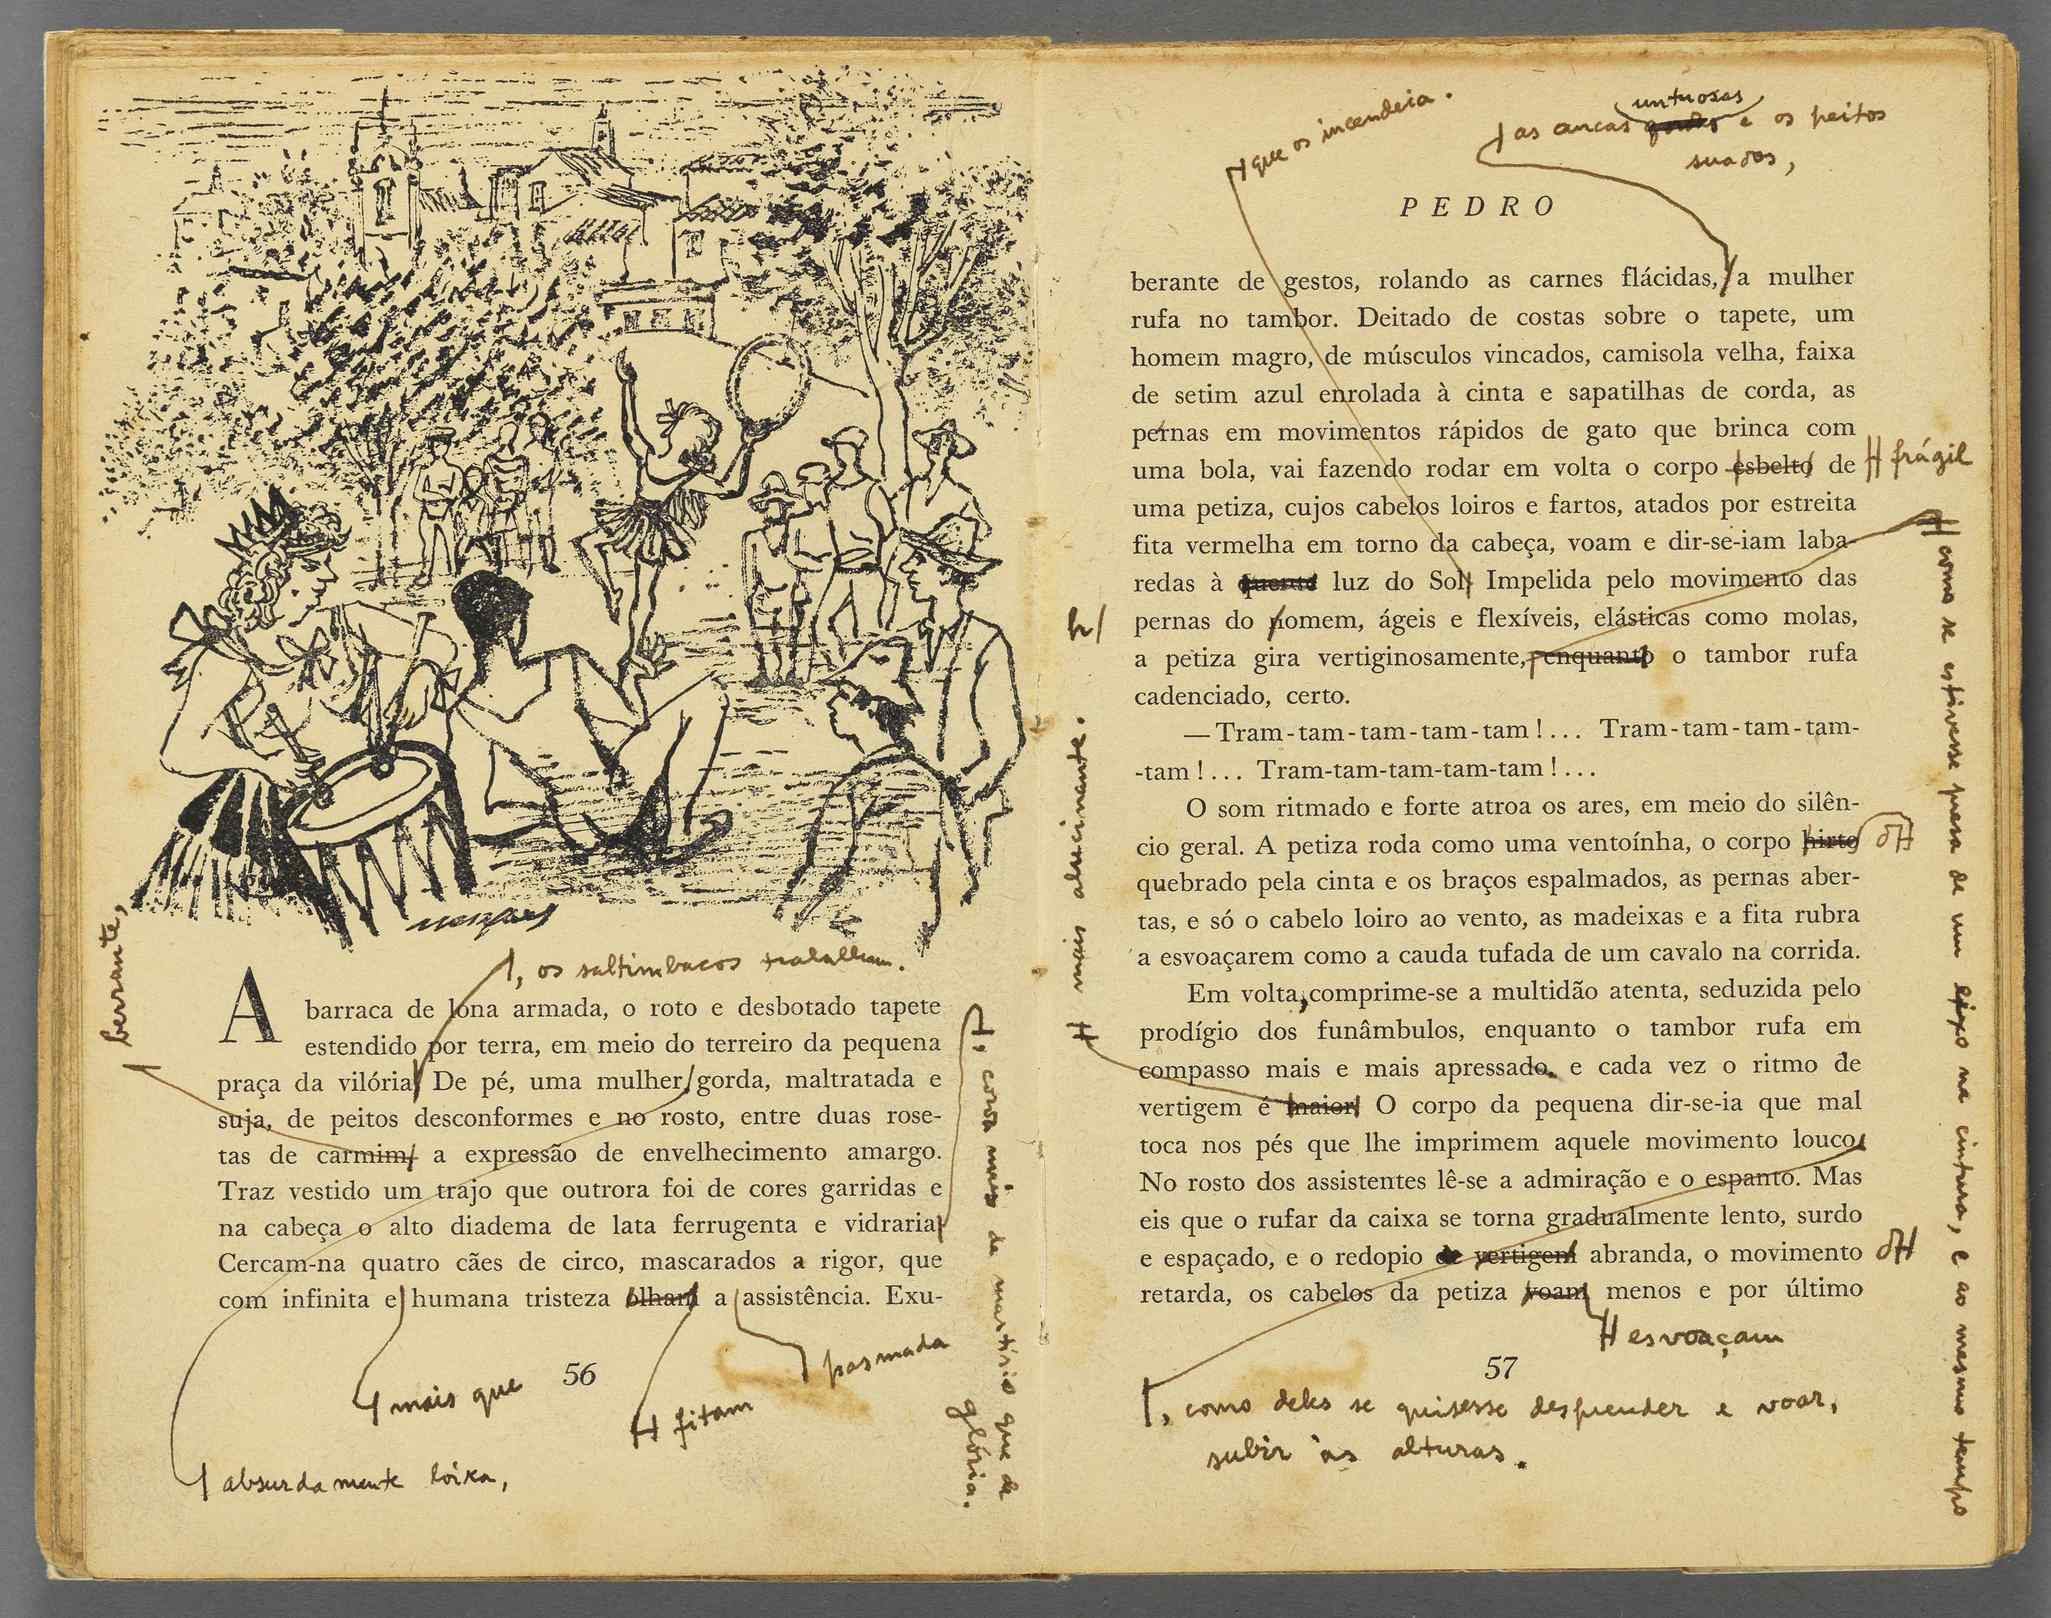 berrante,
, os saltimbacos trabalham.
A barraca de lona armada, o roto e desbotado tapete
estendido por terra, em meio do terreiro da pequena
praça da vilória. De pé, uma mulher, gorda, maltratada e
suja, de peitos desconformes e no rosto, entre duas rose-
tas de carmim, a expressão de envelhecimento amargo.
Traz vestido um trajo que outrora foi de cores garridas e
na cabeça o alto diadema de lata ferrugenta e vidraria
Cercam-na quatro cães de circo, mascarados a rigor, que
com infinita e humana tristeza olham a assistência. Exu-
, coroa mais de martírio que de
glória.
mais que
fitam
pasmada
absurdamente loira,
56
que os incendeia.
untuosas
as ancas e os peitos
suados,
PEDRO
berante de gestos, rolando as carnes flácidas, a mulher
rufa no tambor. Deitado de costas sobre o tapete, um
homem magro, de músculos vincados, camisola velha, faixa
de setim azul enrolada à cinta e sapatilhas de corda, as
pernas em movimentos rápidos de gato que brinca com
uma bola, vai fazendo rodar em volta o corpo esbelto de
frágil
uma petiza, cujos cabelos loiros e fartos, atados por estreita
fita vermelha em torno da cabeça, voam e dir-se-iam laba-
redas à quente luz do Sol Impelida pelo movimento das
h/
pernas do nomem, ágeis e flexíveis, elásticas como molas,
a petiza gira vertiginosamente, enquanto o tambor rufa
cadenciado, certo.
—Tram-tam-tam-tam-tam!... Tram-tam-tam-tam-
-tam!... Tram-tam-tam-tam-tam!...
O som ritmado e forte atroa os ares, em meio do silên-
cio geral. A petiza roda como uma ventoínha, o corpo hirto
quebrado pela cinta e os braços espalmados, as pernas aber-
tas, e só o cabelo loiro ao vento, as madeixas e a fita rubra
a esvoaçarem como a cauda tufada de um cavalo na corrida.
Em volta, comprime-se a multidão atenta, seduzida pelo
prodígio dos funâmbulos, enquanto o tambor rufa em
compasso mais e mais apressado. e cada vez o ritmo de
vertigem é maior. O corpo da pequena dir-se-ia que mal
toca nos pés que lhe imprimem aquele movimento louco,
No rosto dos assistentes lê-se a admiração e o espanto. Mas
eis que o rufar da caixa se torna gradualmente lento, surdo
e espaçado, e o redopio de vertigem abranda, o movimento
retarda, os cabelos da petiza voam menos e por último
mais alucinante.
como se estivesse presa de um eixo na cintura, e ao mesmo tempo
esvoaçam
57
, como deles se quisesse desprender e voar,
subir às alturas.